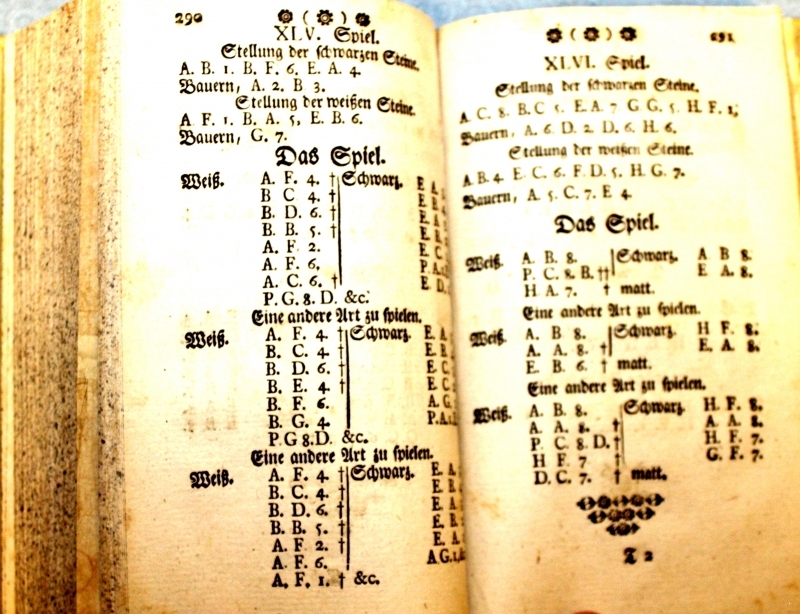 290 ( )
XLV. Spiel.
Stellung der schwarzen Steine.
A. B. 1. B. F. 6. E. A. 4.
Bauern, A. 2. B 3.
Stellung der weißen Steine.
A F. 1. B. A. 5, E. B. 6.
Bauern, G. 7.
Das Spiel.
Weiß. A. F. 4. † Schwarz. E A.
B C 4. † E B.
B. D. 6. † E. A.
B. B. 5. †
A. F 2. E. C.
A. F. 6. P. A.
A. C. 6. † E. D.
P. G. 8. D. &c.
Eine andere Art zu spielen.
Weiß. A. F. 4 † Schwarz. E. A.
B. C. 4. † E. B.
B. D. 6. † E. C.
B. E. 4. † E. C.
B. F. 6. A. G.
B. G. 4. P. A.
P. G 8. D. &c.
Eine andere Art zu spielen.
Weiß. A. F. 4. † Schwarz. E. A.
B. C. 4. † E. B.
B. D. 6. † E. A.
B. B. 5. † E. B.
A. F 2. † E. A.
A. F. 6. A G. 1.
A. F. 1. † &c.
( ) 291
XLVI. Spiel.
Stellung der schwarzen Steine.
A. C. 8. B. C 5. E. A 7 G G. 5. H. F. 1;
Bauern, A. 6. D. 2. D. 6. H 6.
Stellung der weißen Steine.
A. B. 4. E. C. 6. F. D. 5. H. G. 7.
Bauern, A. 5. C. 7. E 4.
Das Spiel.
Weiß. A. B. 8. Schwarz. A B 8.
P. C. 8. B. †† E. A 8.
H A. 7. † matt.
Eine andere Art zu spielen.
Weiß. A. B 8. Schwarz. H F 8.
A. A 8. † E. A 8.
E. B 6. † matt.
Eine andere Art zu spielen.
Weiß. A. B. 8. Schwarz. H. F. 8.
A. A 8. † A. A. 8.
P. C 8. D. † H. F. 7.
H F 7 † G. F. 7.
D. C. 7. † matt.
T 2